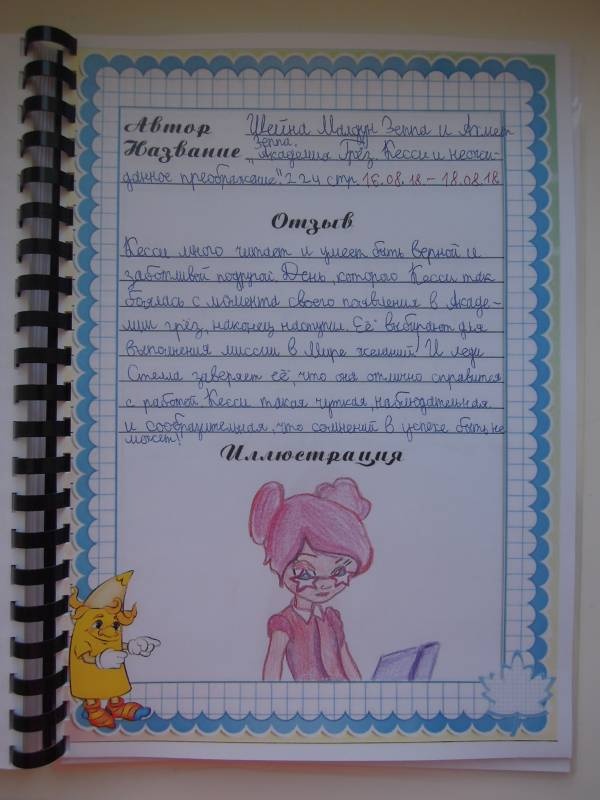 Автор Шейна Малдун Зеппа и Ахмет
зеппа.
Название „Академия Грёз. Кесси и неожи-
данное преображение". 224 стр. 15.08.18 – 18.08.18
Отзыв
Кесси много читает и умеет быть верной и
заботливой подругой. День, которого Кесси так
боялась с момента своего появления в Акаде-
мии грёз, наконец наступил. Её выбирают для
выполнения миссии в Мире желаний! И леди
Стелла заверяет её, что она отлично справится
с работой. Кесси такая чуткая, наблюдательная
и сообразительная, что сомнений в успехе быть не
может!
Иллюстрация